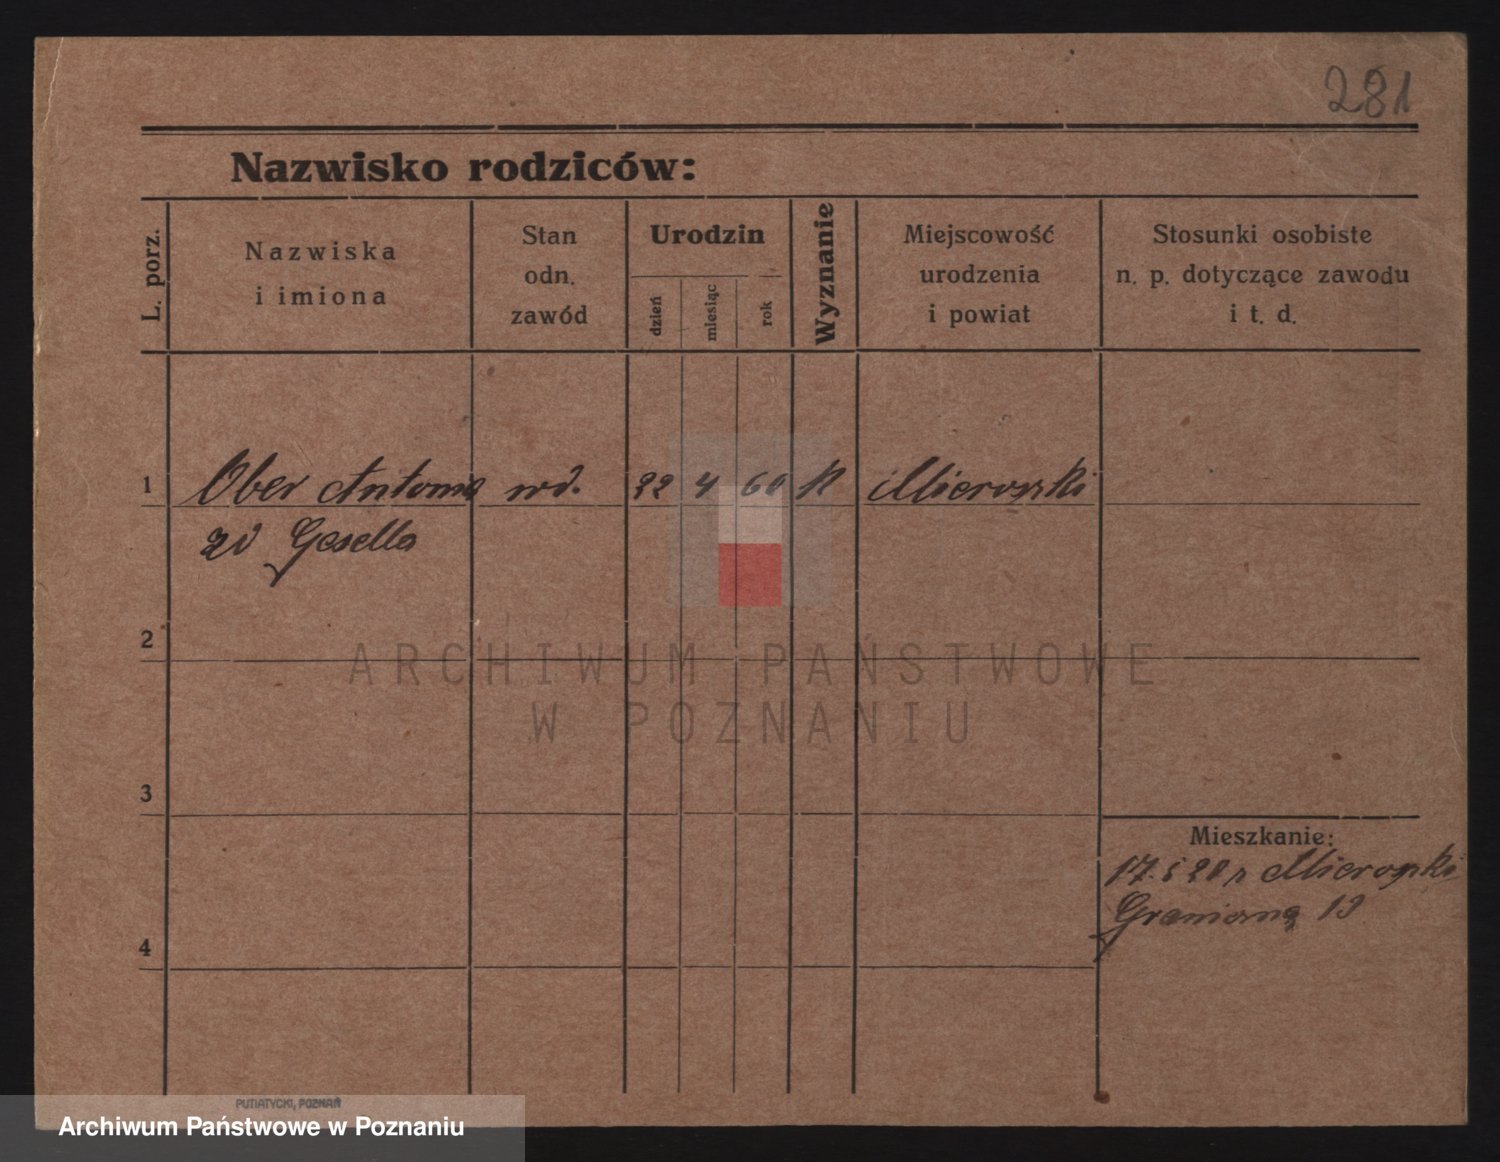 281
Nazwisko rodziców:
L. porz.
Nazwiska
i imiona
Stan
odn.
zawód
Urodzin
dzień
miesiąc
rok
Wyznanie
Miejscowość
urodzenia
i powiat
Stosunki osobiste
n. p. dotyczące zawodu
i t. d.
1 Ober Antonia wd. 22 4 60 K
zd Gesella
2
ARCHIWUM PAŃSTWOWE
W POZNANIU
3
Mieszkanie:
17.
Graniczna 13
4
PUTIATYCKI, POZNAŃ
Archiwum Państwowe w Poznaniu